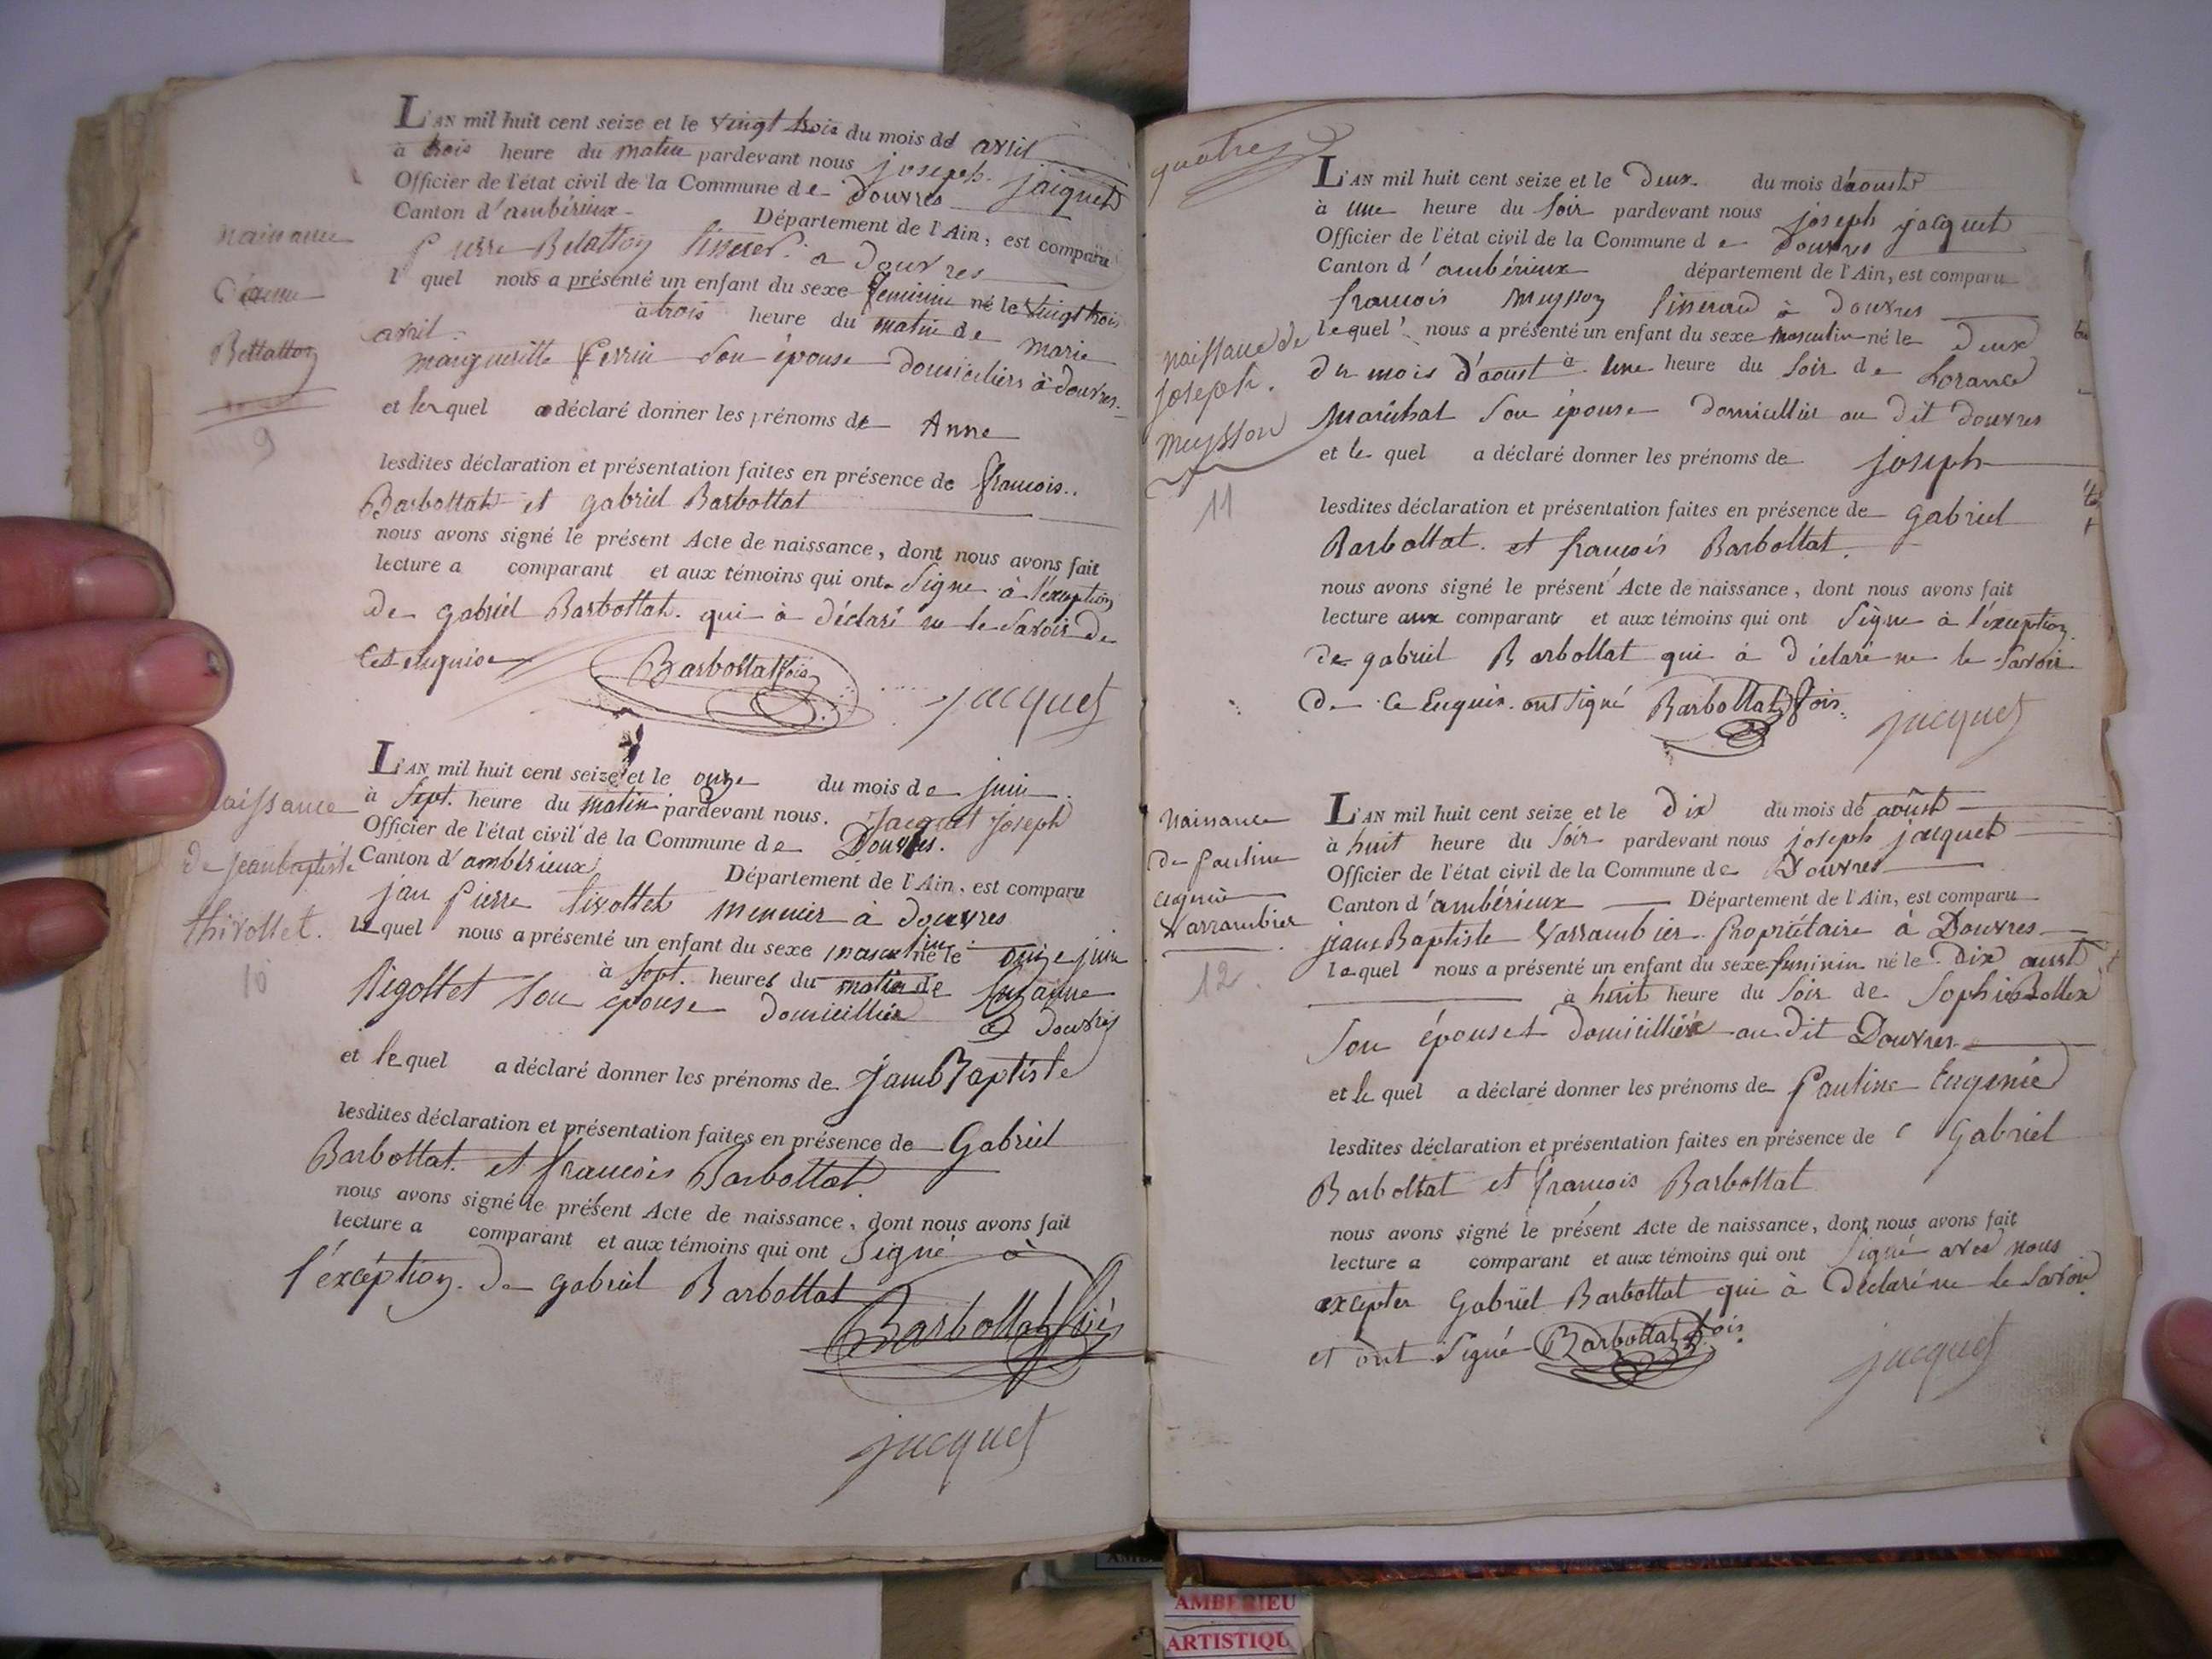 L'AN mil huit cent seize et le vingt trois du mois dd avril
à trois heure du matin pardevant nous joseph jaiquet
Officier de l'état civil de la Commune de Douvres
Canton d'ambérieux Département de l'Ain, est comparu
pierre Belatton tisserd. a Douvres
l quel nous a présenté un enfant du sexe feminin né le vingt trois
avril à trois heure du matin de Marie
marguerite perrin son épouse domiciliers à douvres
et lequel a déclaré donner les prénoms de Anne
lesdites déclaration et présentation faites en présence de francois
Barbottat et gabriel Barbottat
nous avons signé le présent Acte de naissance, dont nous avons fait
lecture a comparant et aux témoins qui ont Signe à l'éxception
de gabriel Barbottat qui à déclaré ne le Savoir de
Barbottat fois
jacquet
nainance
d'anne
Bellatton
9
L'AN mil huit cent seize et le onze du mois de juin
à Sept. heure du matin pardevant nous. Jacquet joseph
Officier de l'état civil de la Commune de Douvres.
Canton d'ambérieux Département de l'Ain, est comparu
jan pierre tivollet meunier à douvres
le quel nous a présenté un enfant du sexe masculin né le onze juin
à Sept. heures du matin de Suzanne
Rigottet Son épouse domicilliér a Douvres
et le quel a déclaré donner les prénoms de JeanBaptiste
lesdites déclaration et présentation faites en présence de Gabriel
Barbottat. et francois Barbottat.
nous avons signé le présent Acte de naissance, dont nous avons fait
lecture a comparant et aux témoins qui ont Signé à
l'éxcéption de gabriel Barbottat
Barbottat fois
jacquet
naissance
de jeanbaptiste
thivollet.
10
quatre
L'AN mil huit cent seize et le Deux du mois d'aoust
à une heure du Soir pardevant nous joseph jacquet
Officier de l'état civil de la Commune de Douvres
Canton d'ambérieux département de l'Ain, est comparu
francois Meysson tisserand à Douvres
lequel nous a présenté un enfant du sexe masculin né le Deux
du mois d'aoust à une heure du Soir de Lorance
Maréchal Son épouse domicillier au dit Douvres
et le quel a déclaré donner les prénoms de joseph
lesdites déclaration et présentation faites en présence de gabriel
Barbottat. et francois Barbottat.
nous avons signé le présent Acte de naissance, dont nous avons fait
lecture aux comparants et aux témoins qui ont Signe à l'éxception
de gabriel Barbottat qui à déclaré ne le Savoir
de Ce Enquis. ont signé Barbottat fois
jacquet
naissance de
joseph.
meysson
11
L'AN mil huit cent seize et le Dix du mois de aoûst
à huit heure du Soir pardevant nous joseph jacquet
Officier de l'état civil de la Commune de Douvres
Canton d'ambérieux Département de l'Ain, est comparu
jean Baptiste Varrambier Propriétaire à Douvres
lequel nous a présenté un enfant du sexe feminin né le Dix aust
à huit heure du Soir de Sophie Bollex
Son épouset Domicilliér au dit Douvres
et le quel a déclaré donner les prénoms de Pauline Eugenie
lesdites déclaration et présentation faites en présence de Gabriel
Barbottat et francois Barbottat
nous avons signé le présent Acte de naissance, dont nous avons fait
lecture a comparant et aux témoins qui ont Signé avec nous
excepter Gabriel Barbottat qui à Déclaré ne le Savoir
et ont Signé Barbottat fois.
jacquet
nainance
de pauline
eugenie
Varrambier
12.
AMBERIEU
ARTISTIQU